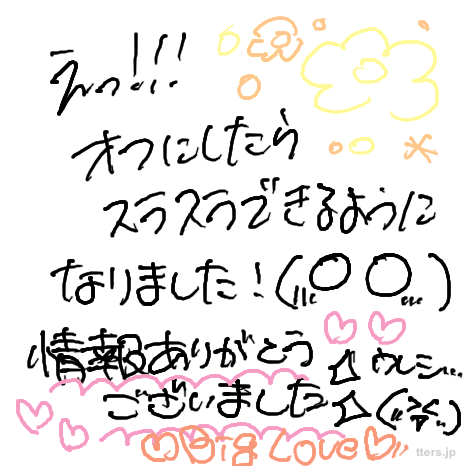 えっ!!!
オフにしたら
スラスラできるように
なりました!(,,O O,,)
情報ありがとう
ございました
ウレシ…
Big Love
tters.jp